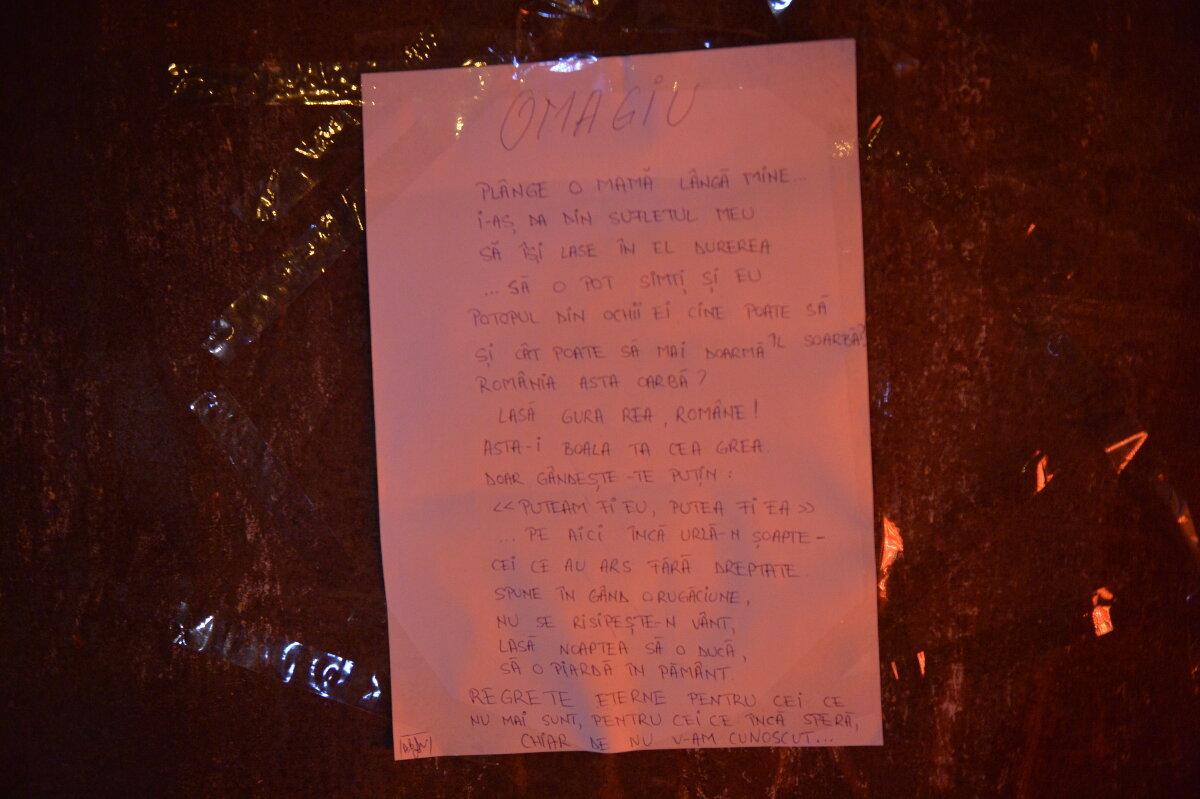 OMAGIU
PLÂNGE O MAMĂ LÂNGĂ MINE...
I-AȘ DA DIN SUFLETUL MEU
SĂ ÎȘI LASE ÎN EL DUREREA
... SĂ O POT SIMȚI ȘI EU
POTOPUL DIN OCHII EI CINE POATE SĂ
ÎL SOARBĂ?
ȘI CÂT POATE SĂ MAI DOARMĂ
ROMÂNIA ASTA OARBĂ?
LASĂ GURA REA, ROMÂNE!
ASTA-I BOALA TA CEA GREA.
DOAR GÂNDEȘTE-TE PUȚIN:
<< PUTEAM FI EU, PUTEA FI EA >>
... PE AICI ÎNCĂ URLĂ-N ȘOAPTE -
CEI CE AU ARS FĂRĂ DREPTATE.
SPUNE ÎN GÂND O RUGĂCIUNE,
NU SE RISIPEȘTE-N VÂNT,
LASĂ NOAPTEA SĂ O DUCĂ,
SĂ O PIARDĂ ÎN PĂMÂNT.
REGRETE ETERNE PENTRU CEI CE
NU MAI SUNT, PENTRU CEI CE ÎNCĂ SPERĂ,
CHIAR DE NU V-AM CUNOSCUT...